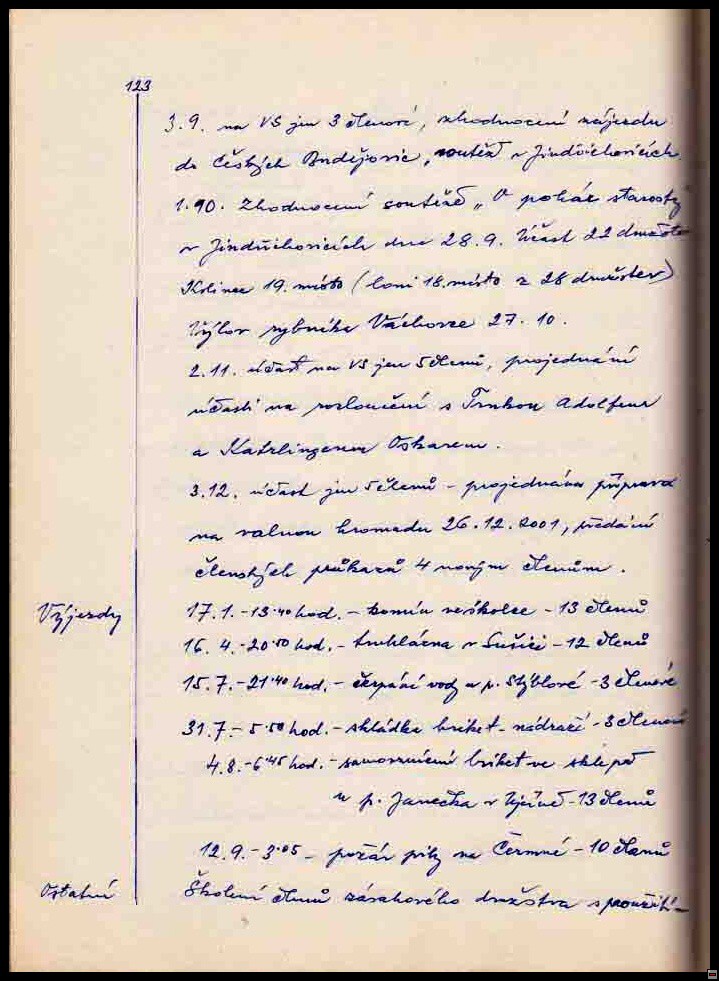 123
3.9. na VS jen 3 členové, zhodnocení zájezdu
do Českých Budějovic, soutěž v Jindřichovicích.
1.10. Zhodnocení soutěže „O pohár starosty
v Jindřichovicích dne 28.9. Účast 22 družstev
Kolinec 19. místo (loni 18. místo z 28 družstev)
Výlov rybníka Váchovce 27.10.
2.11. účast na VS jen 5 členů, projednání
účasti na rozloučení s Trnkou Adolfem
a Katzlingerem Oskarem.
3.12. účast jen 5 členů - projednána příprava
na valnou hromadu 26.12.2001, předání
členských průkazů 4 novým členům.
Výjezdy 17.1. - 13.40 hod. - komín ve školce - 13 členů
16. 4. - 20.50 hod. - truhlárna v Sušici - 12 členů
15.7. - 21.40 hod. - čerpání vody u p. Stýblové - 3 členové
31.7. - 5.50 hod. - skládka briket - nádraží - 3 členové
4.8. - 6.45 hod. - samovznícení briket ve sklepě
u p. Janečka v Ujčíně - 13 členů
12.9. - 3.05 - požár pily na Čermné - 10 členů
Ostatní Školení členů zásahového družstva s použití-